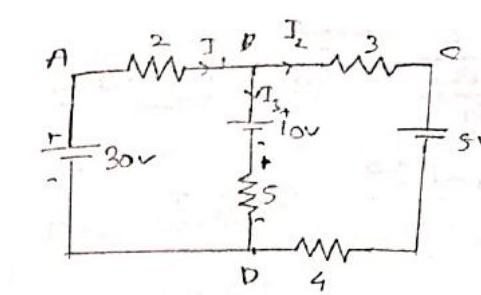 A 2 I₁ B I₂ 3 C
I₃
+ 10V -
+ 30V -
5V
+ 5 -
D 4